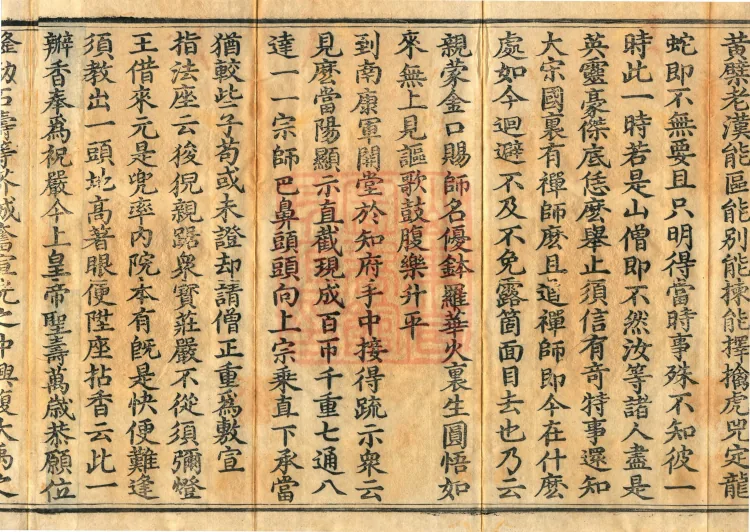 黃檗老漢能區能別能揀能擇擒虎兕定龍
蛇即不無要且只明得當時事殊不知彼一
時此一時若是山僧即不然汝等諸人盡是
英靈豪傑底恁麼舉止須信有奇特事還知
大宗國裏有禪師麼且道禪師即今在什麼
處如今迴避不及不免露箇面目去也乃云
親蒙金口賜師名優鉢羅華火裏生圓悟如
來無上見謳歌鼓腹樂升平
到南康軍開堂於知府手中接得疏示衆云
見麼當陽顯示直截現成百帀千重七通八
達一一宗師巴鼻頭頭向上宗乘直下承當
猶較些子苟或未證却請僧正重爲敷宣
指法座云狻猊親踞衆寶莊嚴不從須彌燈
王借來元是兜率內院本有旣是快便難逢
須教出一頭地高著眼便陞座拈香云此一
瓣香奉爲祝嚴今上皇帝聖壽萬歲恭願位
之中興復大禹之